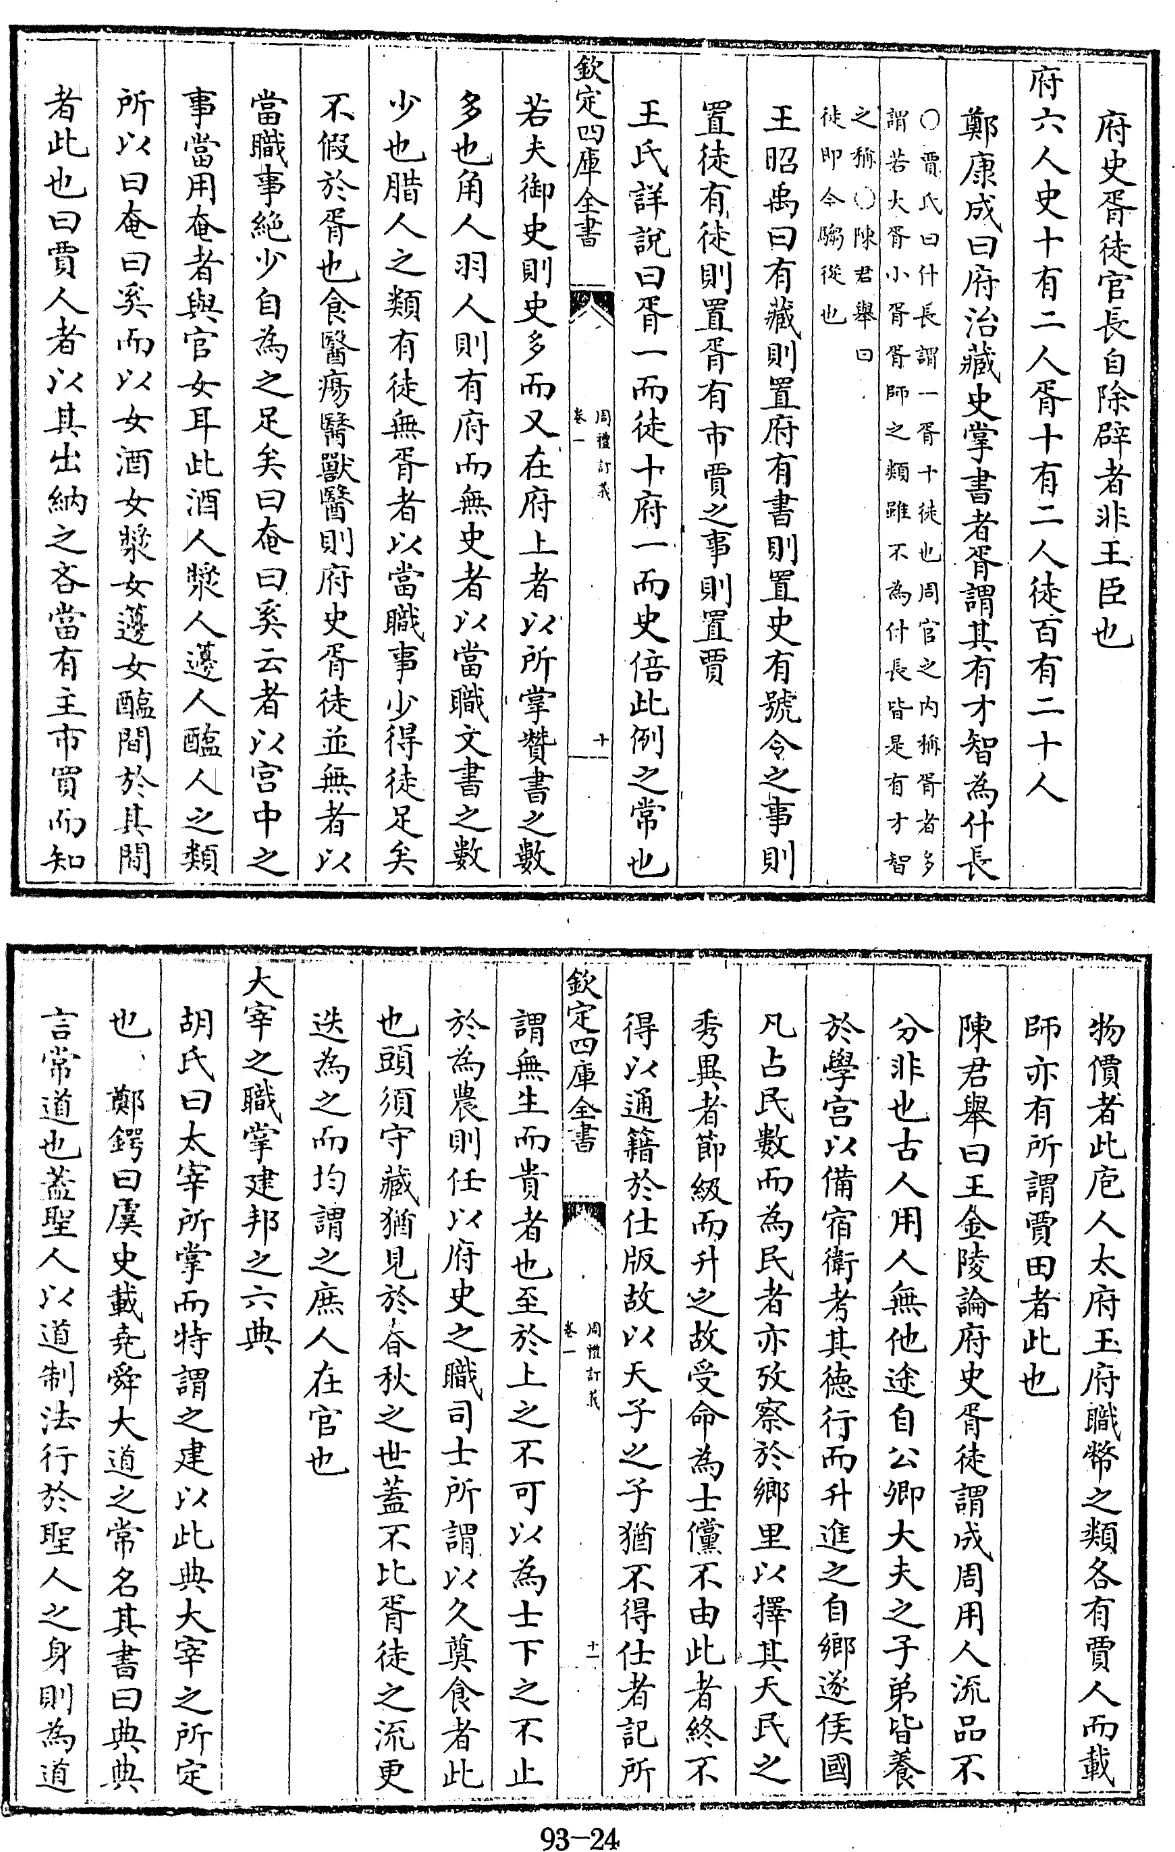 府史胥徒官長自除辟者非王臣也
府六人史十有二人胥十有二人徒百有二十人
鄭康成曰府治藏史掌書者胥謂其有才智為什長
○賈氏曰什長謂一胥十徒也周官之内稱胥者多
謂若大胥小胥胥師之類雖不為什長皆是有才智
之稱○陳君舉曰
徒即今騶從也
王昭禹曰有藏則置府有書則置史有號令之事則
置徒有徒則置胥有市賈之事則置賈
王氏詳說曰胥一而徒十府一而史倍此例之常也
欽定四庫全書
周禮訂義
卷一
十
若夫御史則史多而又在府上者以所掌贊書之數
多也角人羽人則有府而無史者以當職文書之數
少也腊人之類有徒無胥者以當職事少得徒足矣
不假於胥也食醫瘍醫獸醫則府史胥徒並無者以
當職事絶少自為之足矣曰奄曰奚云者以宫中之
事當用奄者與官女耳此酒人漿人籩人醢人之類
所以曰奄曰奚而以女酒女漿女籩女醢間於其間
者此也曰賈人者以其出納之吝當有主市買而知
物價者此庖人太府玉府職幣之類各有賈人而載
師亦有所謂賈田者此也
陳君舉曰王金陵論府史胥徒謂成周用人流品不
分非也古人用人無他途自公卿大夫之子弟皆養
於學宫以備宿衛考其德行而升進之自鄉遂侯國
凡占民數而為民者亦攷察於鄉里以擇其天民之
秀異者節級而升之故受命為士儻不由此者終不
得以通籍於仕版故以天子之子猶不得仕者記所
欽定四庫全書
周禮訂義
卷一
十一
謂無生而貴者也至於上之不可以為士下之不止
於為農則任以府史之職司士所謂以久奠食者此
也頭須守藏猶見於春秋之世蓋不比胥徒之流更
迭為之而均謂之庶人在官也
大宰之職掌建邦之六典
胡氏曰太宰所掌而特謂之建以此典大宰之所定
也 鄭鍔曰虞史載堯舜大道之常名其書曰典典
言常道也蓋聖人以道制法行於聖人之身則為道
93-24